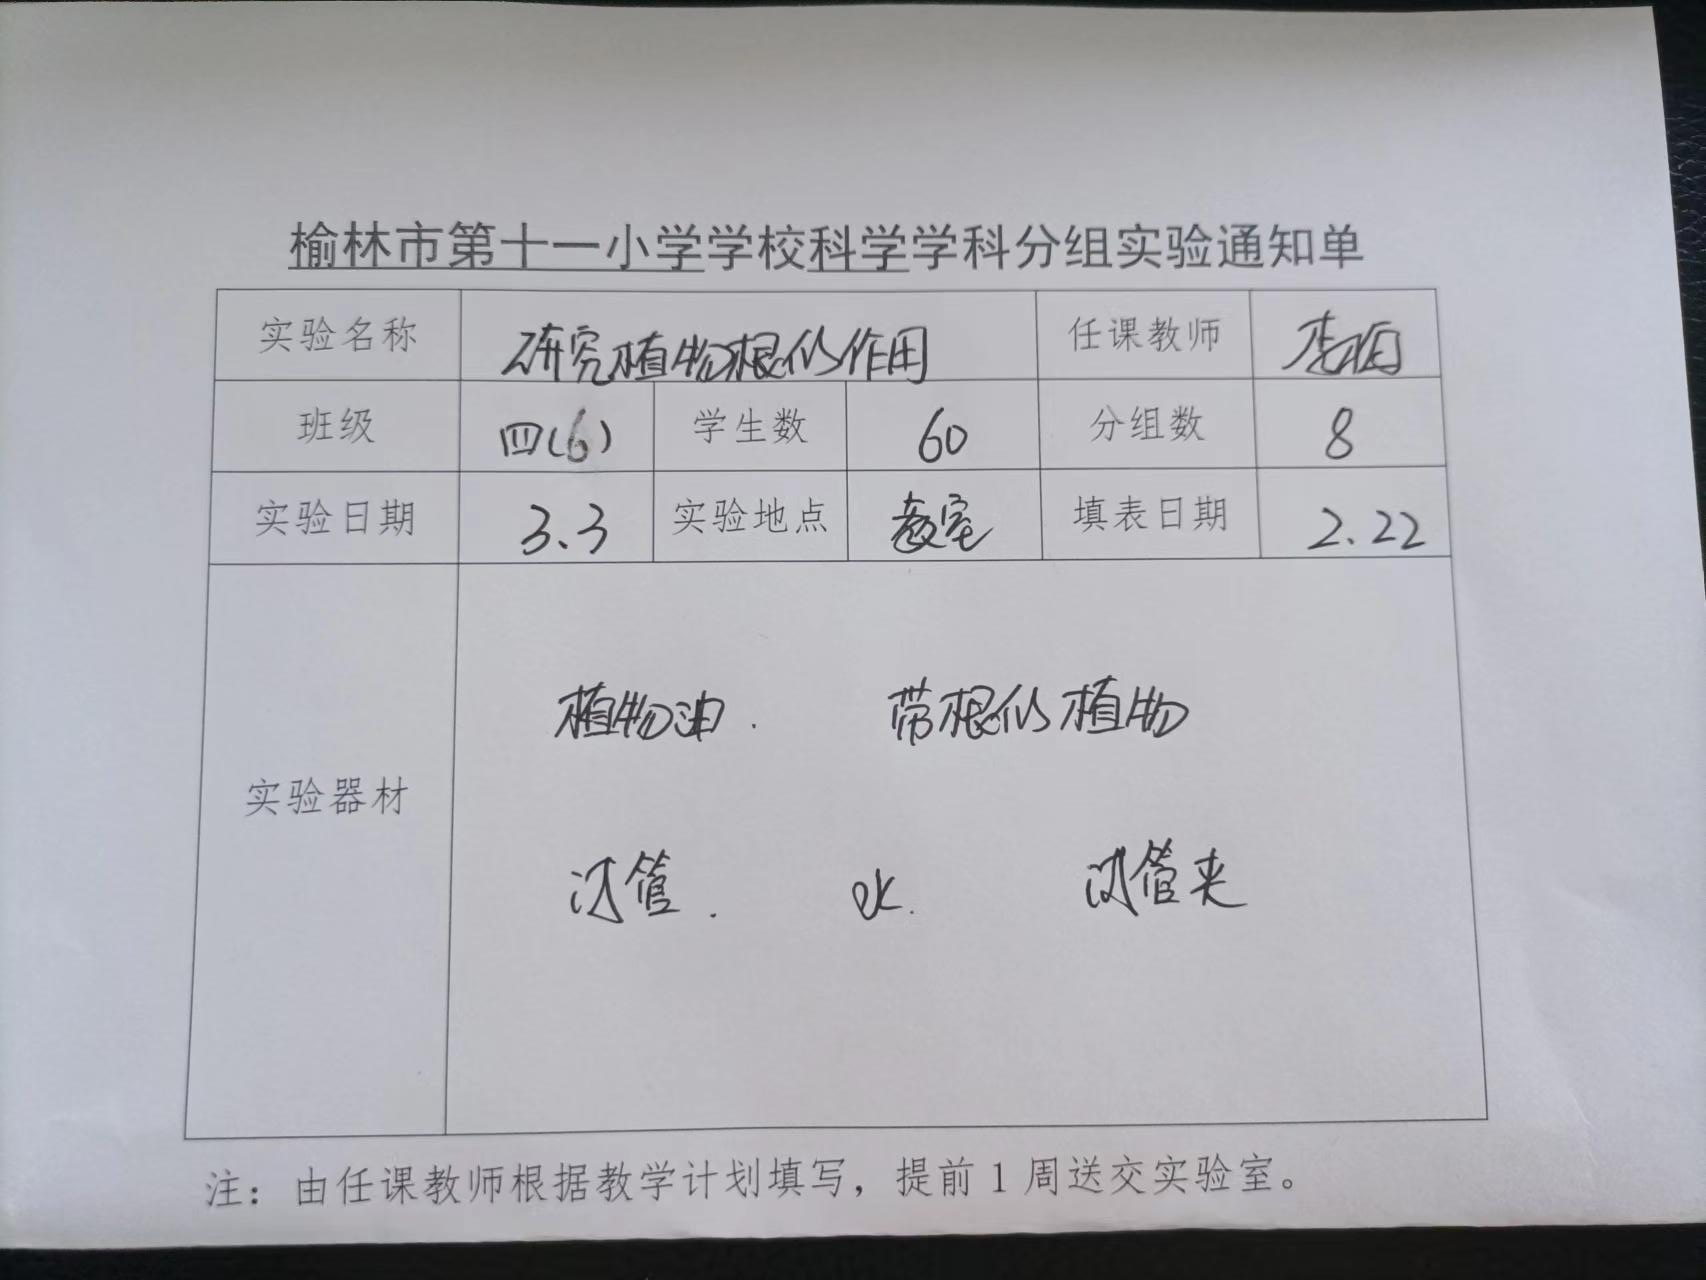 榆林市第十一小学学校科学学科分组实验通知单
实验名称 研究植物根的作用 任课教师 李
班级 四(6) 学生数 60 分组数 8
实验日期 3.3 实验地点 教室 填表日期 2.22
植物油. 带根的植物
实验器材
试管. 水. 试管夹
注：由任课教师根据教学计划填写，提前1周送交实验室。